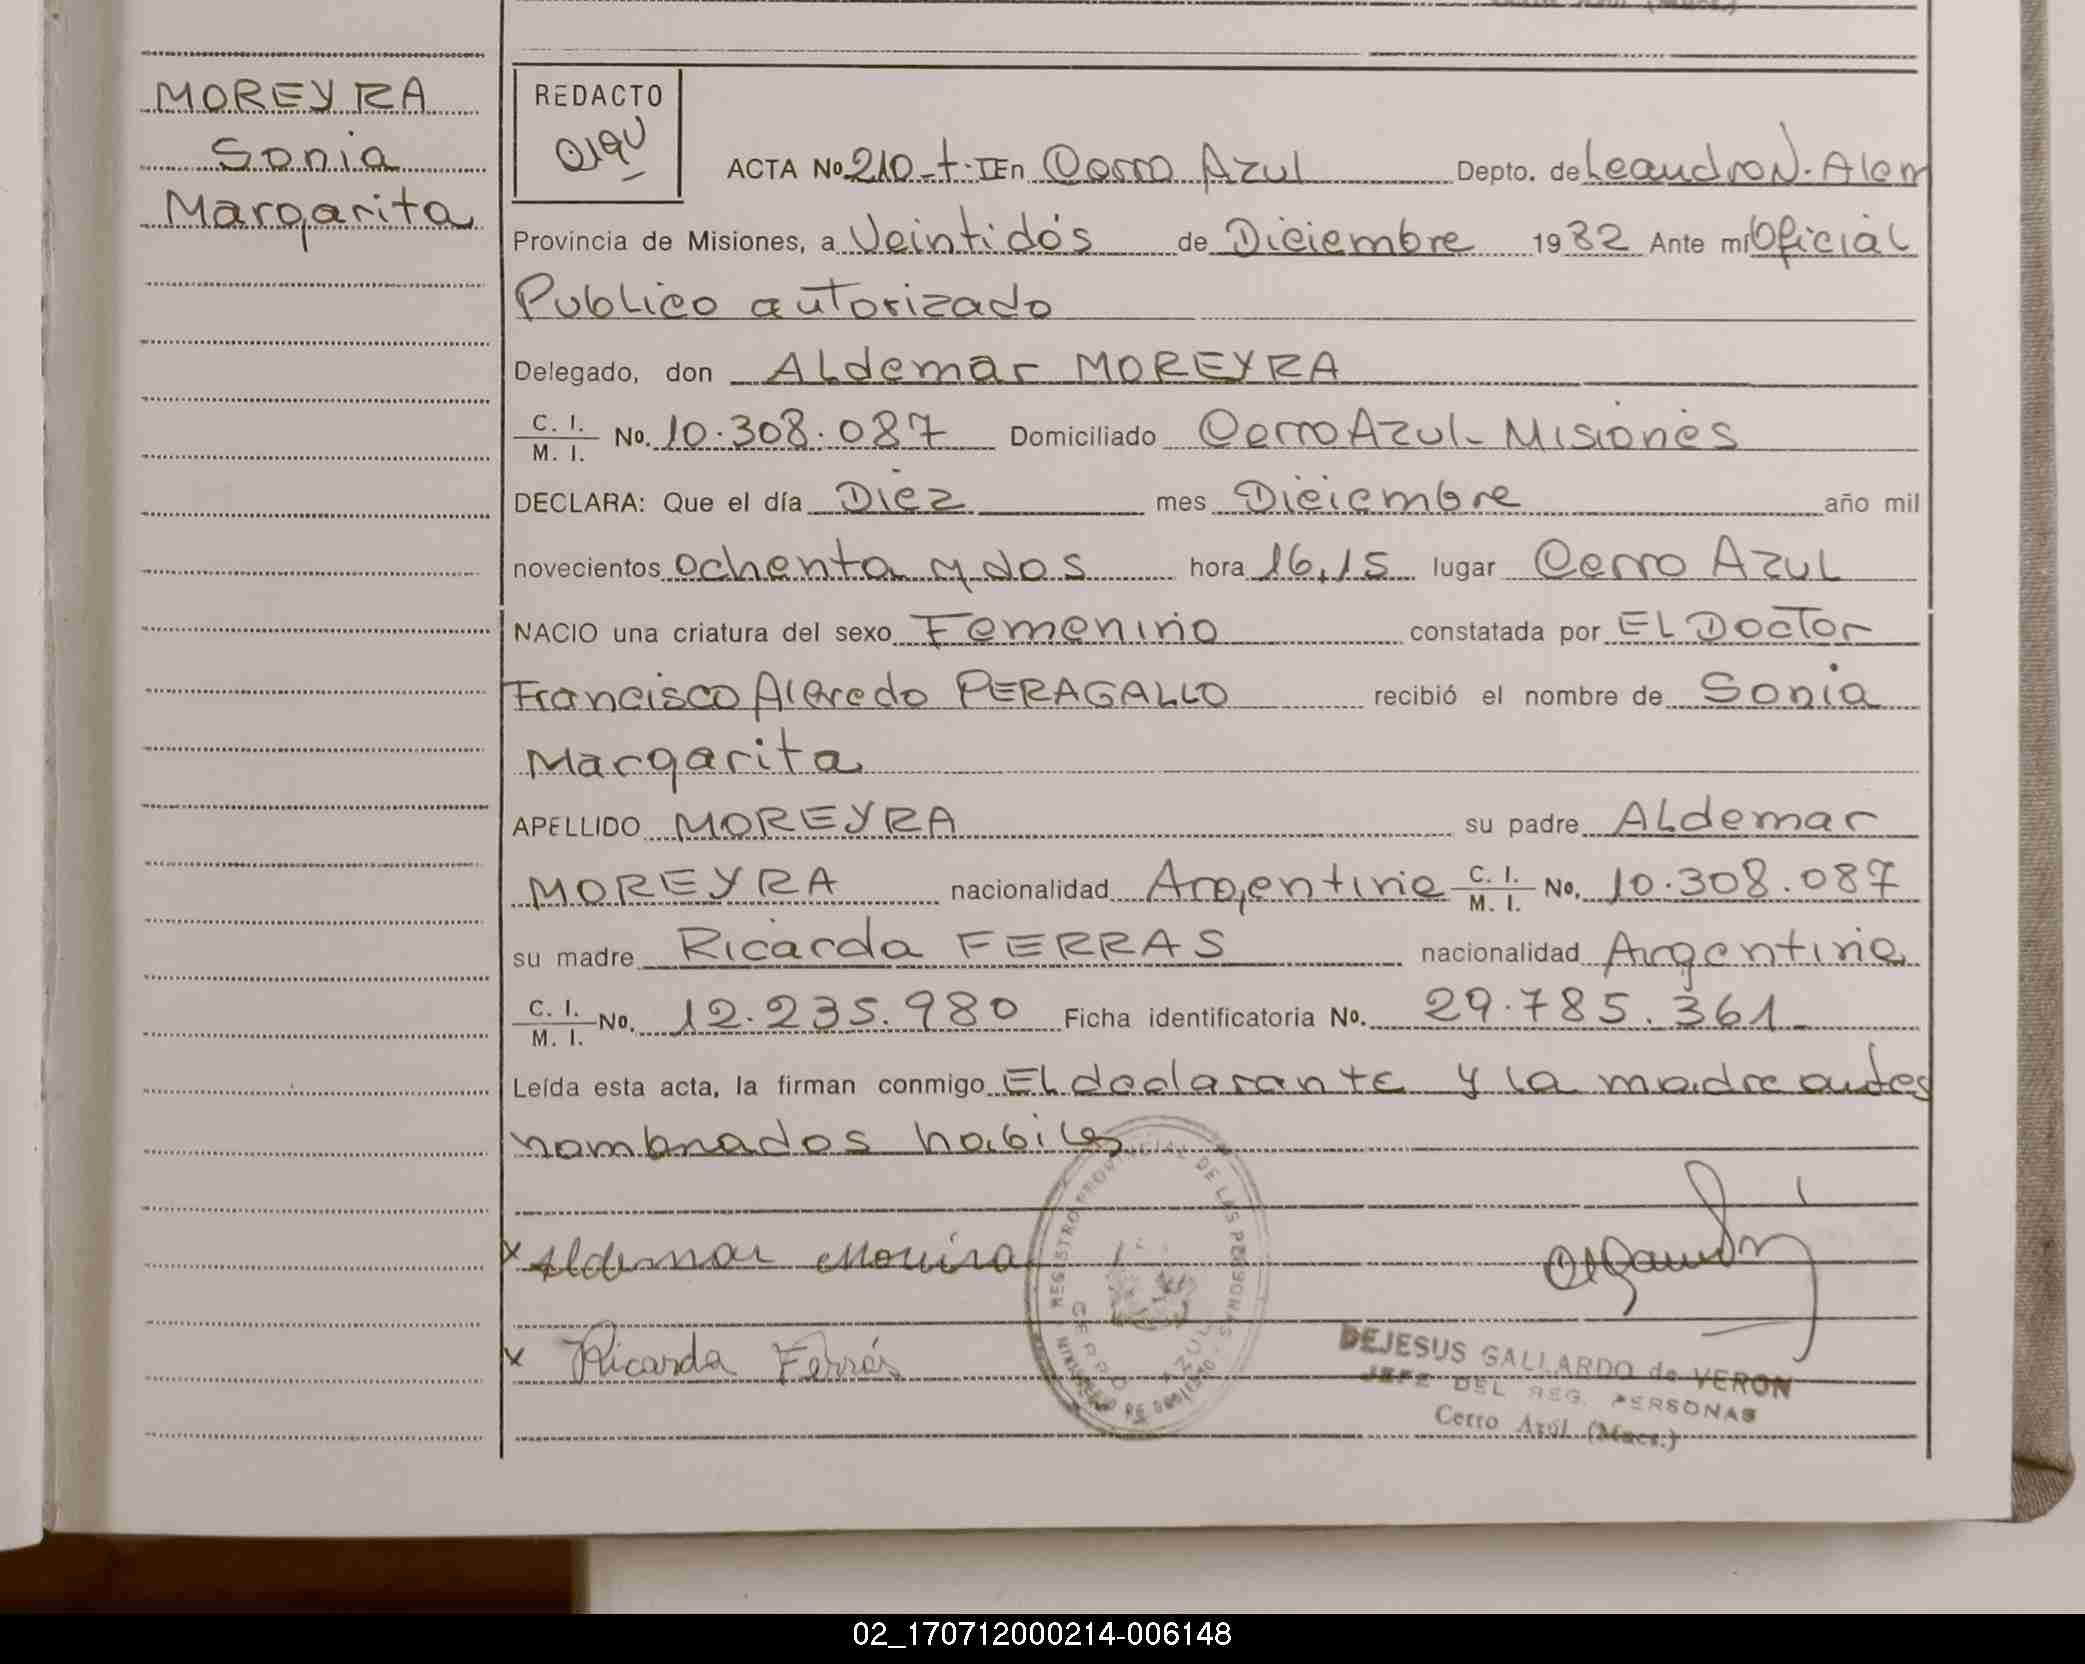 MOREYRA
Sonia
Margarita
REDACTO
ACTA No 210-t.I En Cerro Azul Depto. de Leandro N. Alem
Provincia de Misiones, a Veintidós de Diciembre 1982 Ante mi Oficial
Publico autorizado
Delegado, don Aldemar MOREYRA
C. I. / M. I. No. 10.308.087 Domiciliado Cerro Azul - Misiones
DECLARA: Que el día Diez mes Diciembre año mil
novecientos ochenta y dos hora 16,15 lugar Cerro Azul
NACIO una criatura del sexo Femenino constatada por El Doctor
Francisco Alfredo PERAGALLO recibió el nombre de Sonia
Margarita
APELLIDO MOREYRA su padre Aldemar
MOREYRA nacionalidad Argentina C. I. / M. I. No. 10.308.087
su madre Ricarda FERRAS nacionalidad Argentina
C. I. / M. I. No. 12.235.980 Ficha identificatoria No. 29.785.361
Leída esta acta, la firman conmigo El declarante y la madre antes
nombrados habiles
REGISTRO PROVINCIAL DE LAS PERSONAS
CERRO AZUL
MINISTERIO DE GOBIERNO
x Aldemar Moreira
x Ricarda Ferrás
DEJESUS GALLARDO de VERON
JEFE DEL REG. PERSONAS
Cerro Azul (Mnes.)
02_170712000214-006148